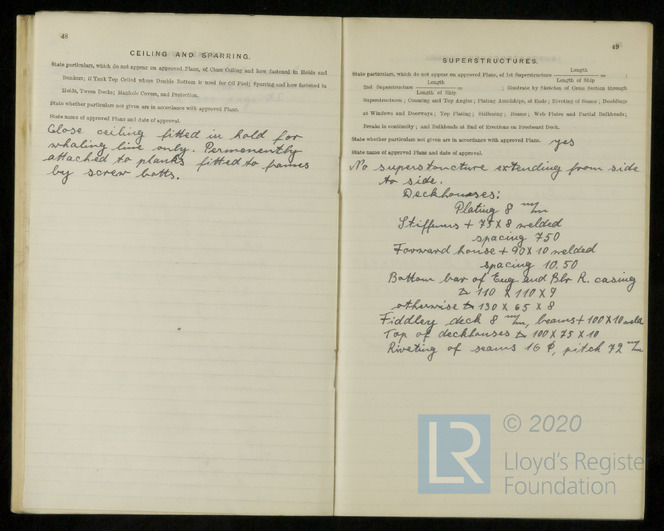 48
CEILING AND SPARRING.
State particulars, which do not appear on approved Plans, of Close Ceiling and how fastened in Holds and
Bunkers; if Tank Top Ceiled where Double Bottom is used for Oil Fuel; Sparring and how fastened in
Holds, Tween Decks; Manhole Covers, and Protection.
State whether particulars not given are in accordance with approved Plans.
State name of approved Plans and date of approval.
Close ceiling fitted in hold for
whaling line only. Permenently
attached to planks fitted to frams
by screw botts.
49
SUPERSTRUCTURES.
State particulars, which do not appear on approved Plans, of 1st Superstructure Length / Length of Ship = ;
2nd Superstructure Length / Length of Ship = ; Illustrate by Sketches of Cross Section through
Superstructures; Coaming and Top Angles; Plating Amidships, at Ends; Riveting of Seams; Doublings
at Windows and Doorways; Top Plating; Stiffening; Beams; Web Plates and Partial Bulkheads;
Breaks in continuity; and Bulkheads at End of Erections on Freeboard Deck.
State whether particulars not given are in accordance with approved Plans. yes
State name of approved Plans and date of approval.
No superstructure extending from side
to side.
Deckhouses:
Plating 8 m/m
Stiffenns + 75 X 8 welded
spacing 750
Forward house + 90 X 10 welded
spacing 10.50
Bottom bar of Eng and Blr R. casing
110 X 110 X 9
otherwise 130 X 65 X 8
Fiddley deck 8 m/m, beams + 100 X 10
Top of deckhouses 100 X 75 X 10
Riveting of seams 16 φ, pitch 72 m/m
LR
© 2020
Lloyd's Register
Foundation